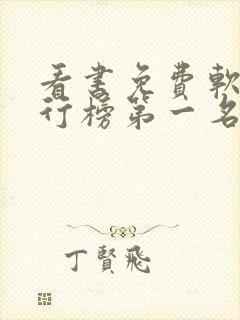 看書免費軟
行榜第一名
丁賢飛